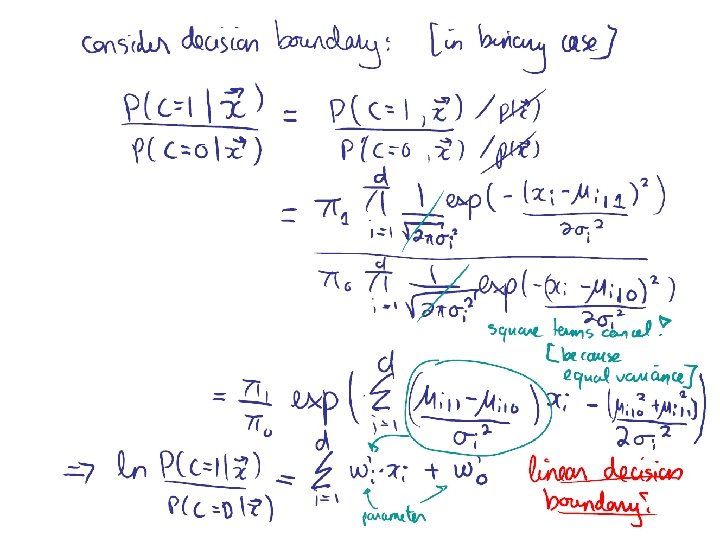 consider decision boundary: [in binary case]
P(C=1|x⃗) / P(C=0|x⃗) = P(C=1, x⃗) / p(x⃗) / P(C=0, x⃗) / p(x⃗)
= π₁ ∏_{i=1}^{d} 1/√(2πσᵢ²) exp(-(xᵢ-μ_{i|1})²/2σᵢ²)
π₀ ∏_{i=1}^{d} 1/√(2πσᵢ²) exp(-(xᵢ-μ_{i|0})²/2σᵢ²)
square terms cancel!
[because
equal variance]
= π₁/π₀ exp(∑_{i=1}^{d} ((μ_{i|1}-μ_{i|0})/σᵢ²) xᵢ - (μ_{i|0}²+μ_{i|1}²)/2σᵢ²)
⇒ ln P(C=1|x⃗)/P(C=0|x⃗) = ∑_{i=1}^{d} wᵢ·xᵢ + w₀
linear decision
boundary!
parameter